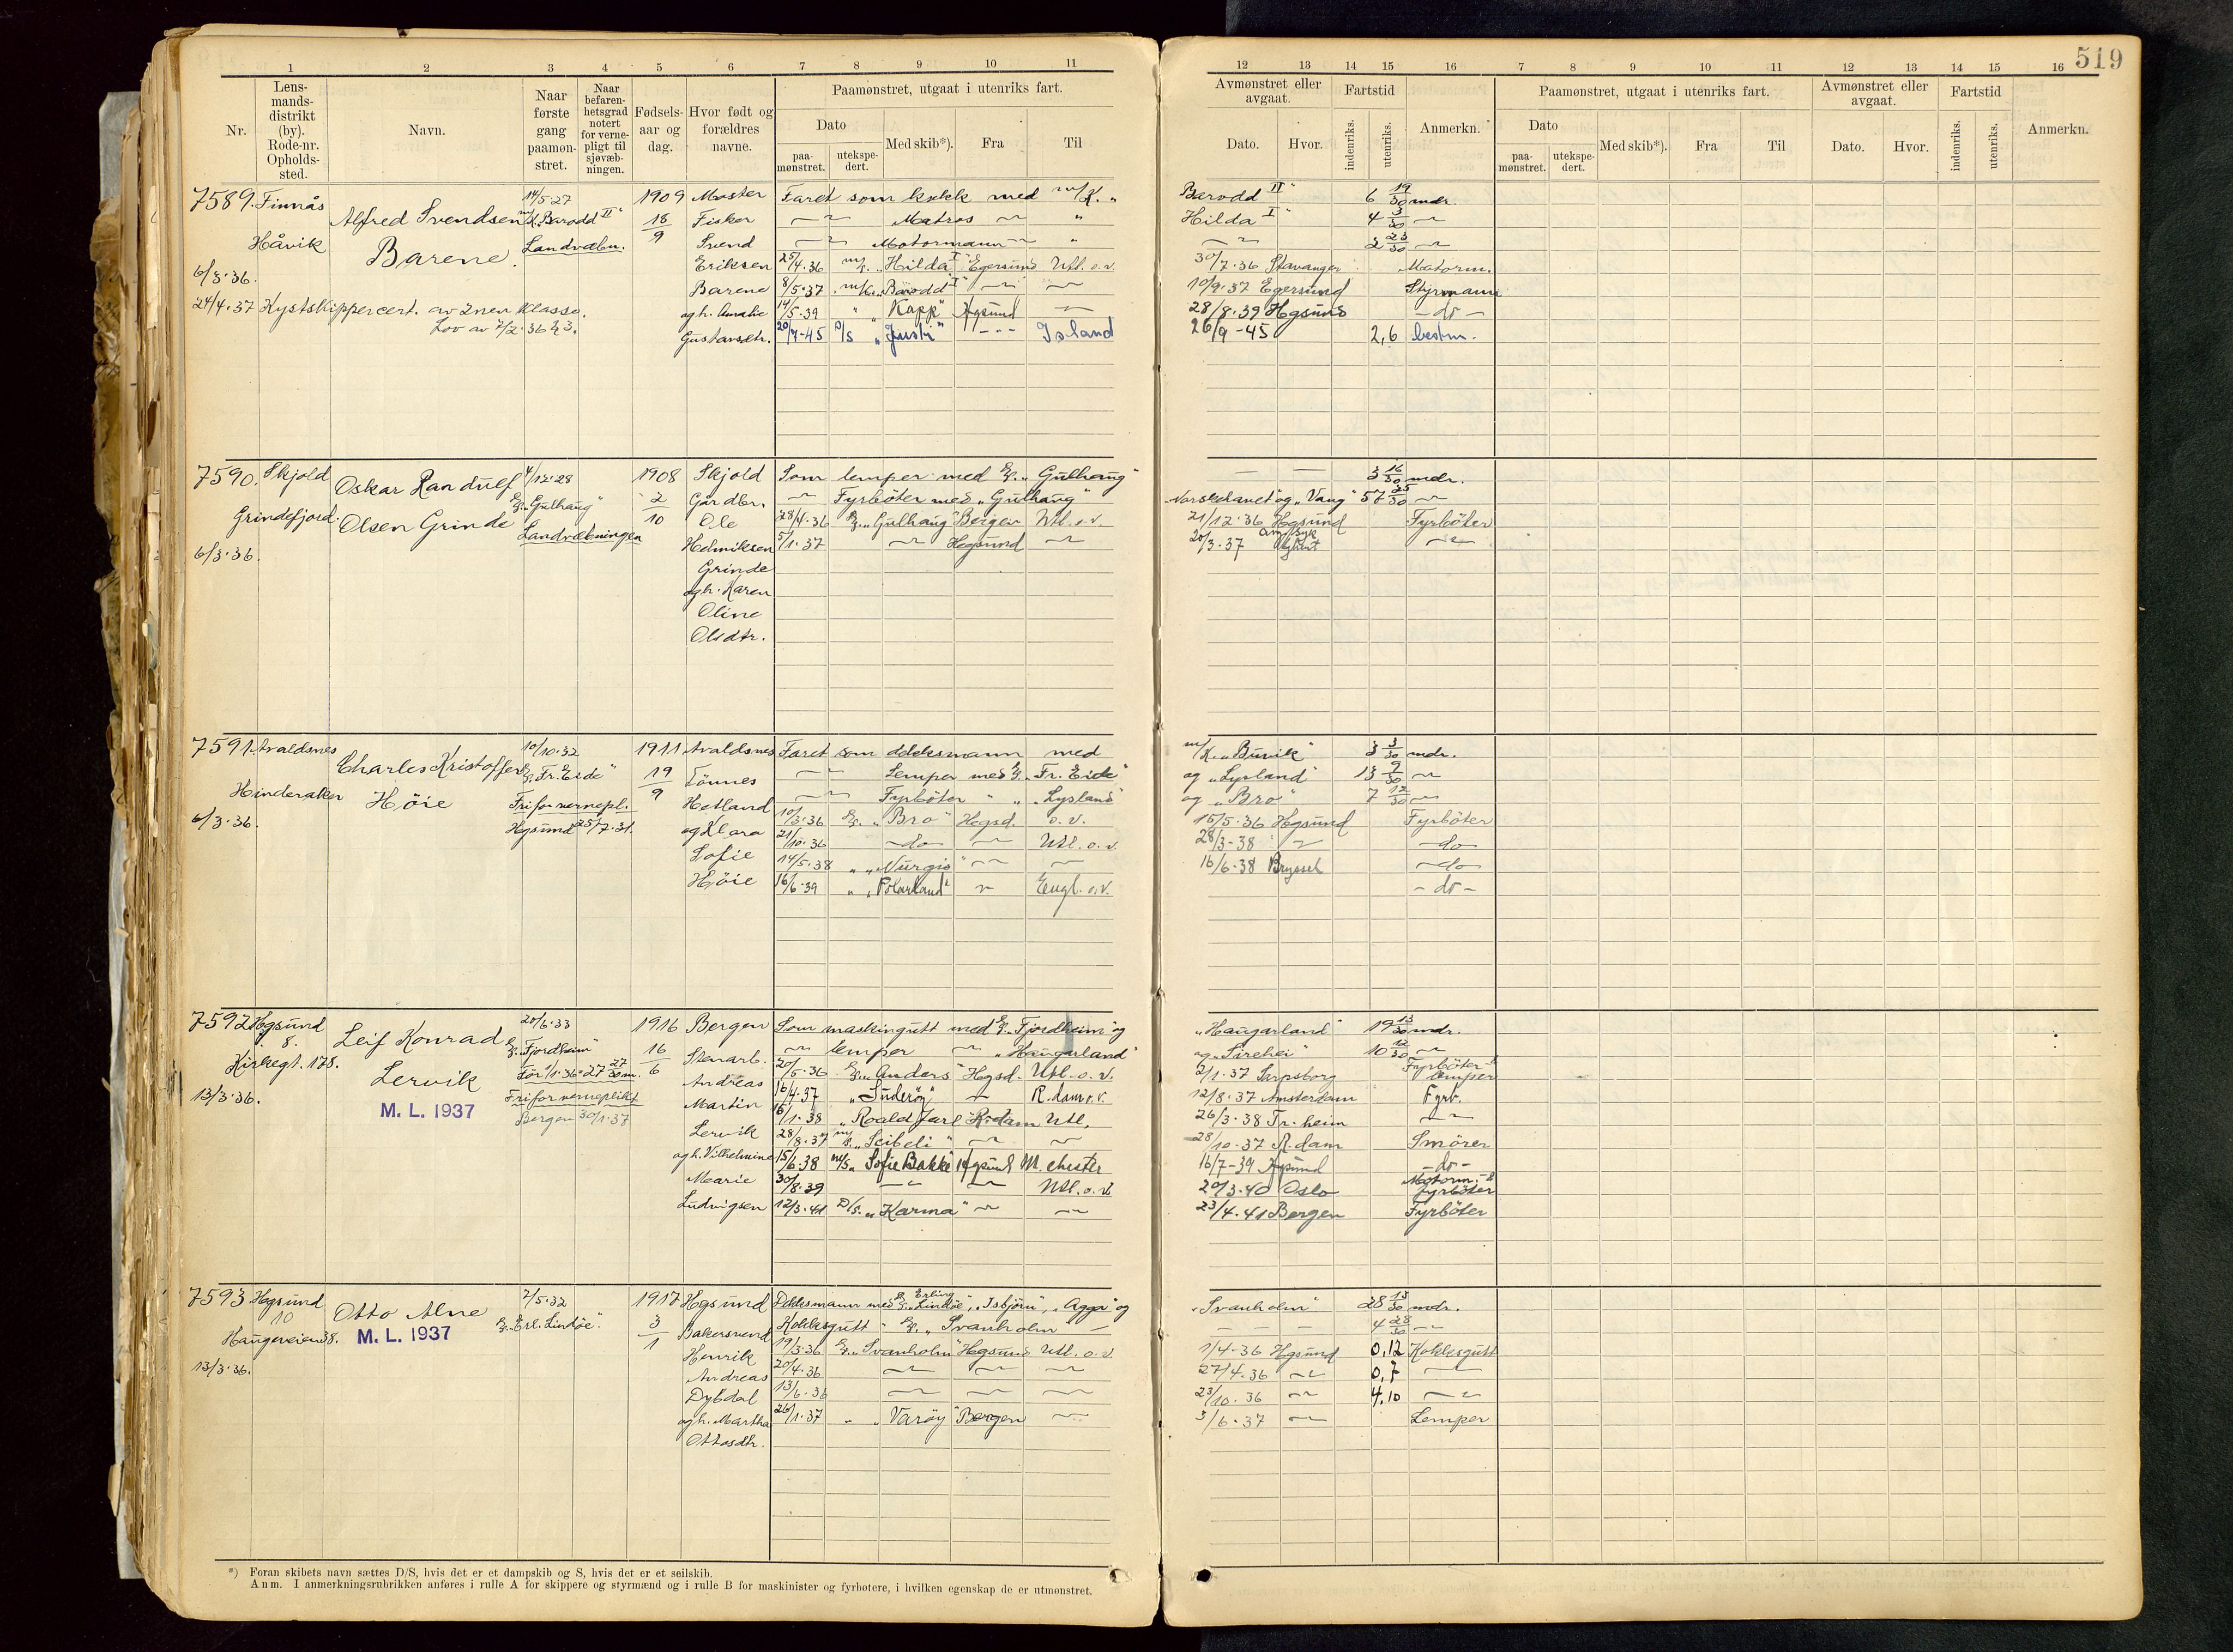 519
1 2 3 4 5 6 7 8 9 10 11 12 13 14 15 16 7 8 9 10 11 12 13 14 15 16
Nr.
Lens-
mands-
distrikt
(by).
Rode-nr.
Opholds-
sted.
Navn.
Naar
første
gang
paamøn-
stret.
Naar
befaren-
hetsgrad
notert
for verne-
pligt til
sjøvæb-
ningen.
Fødsels-
aar og
dag.
Hvor født og
forældres
navne.
Paamønstret, utgaat i utenriks fart.
Dato
paa-
mønstret.
utekspe-
dert.
Med skib*).
Fra
Til
Avmønstret eller
avgaat.
Dato.
Hvor.
Fartstid
indenriks.
utenriks.
Anmerkn.
Paamønstret, utgaat i utenriks fart.
Dato
paa-
mønstret.
utekspe-
dert.
Med skib*).
Fra
Til
Avmønstret eller
avgaat.
Dato.
Hvor.
Fartstid
indenriks.
utenriks.
Anmerkn.
7589. Finnås 14/5-27 1909 Moster Faret som kokk med m/K. „ Barodd II" 6 19/30 mdr.
Alfred Svendsen m/K. Barodd II" 18/9 Fisker —"— Matros —"— " Hilda I" 4 3/30 —"—
Håvik Barene. Landvæbn. Svend —"— Motormann —"— " —"— 2 23/30 —"—
6/3-36. Eriksen 25/4-36 m/k. „Hilda I" Egersund Utl. o.v. 30/7-36 Stavanger Motorm.
Barene 8/5-37 m/k. „Barodd I" —"— —"— 10/9-37 Egersund Styrmann
24/4-37 Kystskippercert. av 2nen klasse. og h. Amalie 14/5-39 " „Kapp" Hgsund —"— 28/8-39 Hgsund - do -
Lov av 7/2-36 § 3. Gustavsdtr. 20/7-45 D/s „ " -"- Island 26/9-45 2,6 bestm.
7590. Skjold Oskar Randulf 4/12-28 1908 Skjold Som lemper med D/S. „Gulhaug" — — 3 16/30 mdr.
D/S. „Gulhaug" 2/10 Gårdbr. —"— Fyrböter med „Gulhaug" Norskehavet" og „Vang" 57 25/30 —"—
Grindefjord Olsen Grinde Landvæbningen Ole 28/4-36 D/S. „Gulhaug" Bergen Utl. o.v. 21/12-36 Hgsund Fyrböter
6/3-36. Helmiksen 5/1-37 —"— Hgsund —"— 20/3-37 —"—
Grinde
og h. Karen
Oline
Olsdtr.
7591. Avaldsnes 10/10-32 1911 Avaldsnes Faret som dekksmann med m/K. „Buvik" 3 3/30 mdr.
Charles Kristoffer D/S. „Fr. Eide" 19/9 Tönnes —"— Lemper med D/S. „Fr. Eide" og „Lysland" 13 9/30 —"—
Hinderaker Höie Fri for vernepl. Hetland —"— Fyrböter " „ „Lysland" og „Bro" 7 12/30 —"—
6/3-36. Hgsund 25/7-31. og Klara 10/3-36 D/S. „Bro" Hgsd. o.v. 15/5-36 Hgsund Fyrböter
Sofie 21/10-36 —do— —"— Utl. o.v. 28/3-38 —"— —do—
Höie 14/5-38 " „Nurgis" —"— —"— 16/6-38 Bryssel —do—
16/6-39 " „Polarland" —"— Engl. o.v. - do -
7592 Hgsund 20/6-33 1916 Bergen Som maskingutt med D/S. „Fjordheim" og „Haugarland" 19 13/30 mdr.
8. Leif Konrad D/S. „Fjordheim" 16/6 Stenarb. —"— lemper —"— „Haugarland" og „Sirehei" 10 12/30 —"—
Kirkegt. 178. Lervik För 1/1-36 = 27 27/30 m. Andreas 20/5-36 D/S. „Anders" Hgsd. Utl. o.v. 2/1-37 Sarpsborg Fyrböter & lemper
13/3-36. M. L. 1937 Fri for verneplikt Martin 16/4-37 „Suderöy" —"— R.dam o.v. 12/8-37 Amsterdam Fyrb.
Bergen 30/1-37 Lervik 16/1-38 „Roald Jarl" R.dam Utl. 26/3-38 Tr.heim —"—
og h. Vilhelmine 28/8-37 m/s. „Leibeli" —"— —"— 28/10-37 R.dam Smörer
Marie 15/6-38 m/s. „Sofie Bakke" Hgsund M.chester 16/7-39 Hgsund - do -
Ludvigsen 30/8-39 —"— —"— Utl. o.v. 20/3-40 Oslo Motorm. & fyrböter
12/3-41 D/S. „Karma" —"— —"— 23/4-41 Bergen Fyrböter
7593 Hgsund 2/5-32 1917 Hgsund Dekksmann med D/S. „Erling Lindöe", „Isbjörn", „Agga" og „Svanholm" 28 13/30 mdr.
10 Otto Alne D/S. „Erl. Lindöe". 3/1 Bakersvend Kokksgutt " D/S. „Svanholm" — — — — 4 28/30 —"—
Haugeveien 38. M. L. 1937 Henrik 19/3-36 D/S. „Svanholm" Hgsund Utl. o.v. 1/4-36 Hgsund 0,12 Kokksgutt
13/3-36. Andreas 20/4-36 —"— —"— —"— 27/4-36 —"— 0,7 —"—
Dybdal 13/6-36 —"— —"— —"— 23/10-36 —"— 4,10 —"—
og h. Martha 26/1-37 " „Varöy" Bergen —"— 3/6-37 —"— Lemper
Ottosdtr.
*) Foran skibets navn sættes D/S, hvis det er et dampskib og S, hvis det er et seilskib.
Anm. I anmerkningsrubrikken anføres i rulle A for skippere og styrmænd og i rulle B for maskinister og fyrbøtere, i hvilken egenskap de er utmønstret.